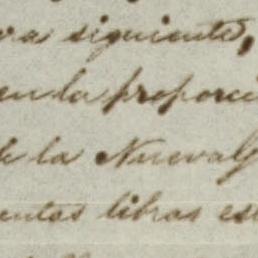 ra siguiente,
en la proporci
de la Nueva
entas libras es